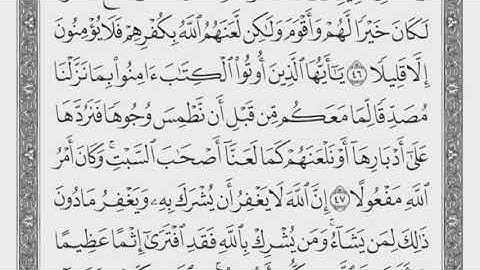 لَكَانَ خَيْرًا لَّهُمْ وَأَقْوَمَ وَلَٰكِن لَّعَنَهُمُ ٱللَّهُ بِكُفْرِهِمْ فَلَا يُؤْمِنُونَ
إِلَّا قَلِيلًا ٤٦ يَٰٓأَيُّهَا ٱلَّذِينَ أُوتُوا۟ ٱلْكِتَٰبَ ءَامِنُوا۟ بِمَا نَزَّلْنَا
مُصَدِّقًا لِّمَا مَعَكُم مِّن قَبْلِ أَن نَّطْمِسَ وُجُوهًا فَنَرُدَّهَا
عَلَىٰٓ أَدْبَارِهَآ أَوْ نَلْعَنَهُمْ كَمَا لَعَنَّآ أَصْحَٰبَ ٱلسَّبْتِ ۚ وَكَانَ أَمْرُ
ٱللَّهِ مَفْعُولًا ٤٧ إِنَّ ٱللَّهَ لَا يَغْفِرُ أَن يُشْرَكَ بِهِۦ وَيَغْفِرُ مَا دُونَ
ذَٰلِكَ لِمَن يَشَآءُ ۚ وَمَن يُشْرِكْ بِٱللَّهِ فَقَدِ ٱفْتَرَىٰٓ إِثْمًا عَظِيمًا